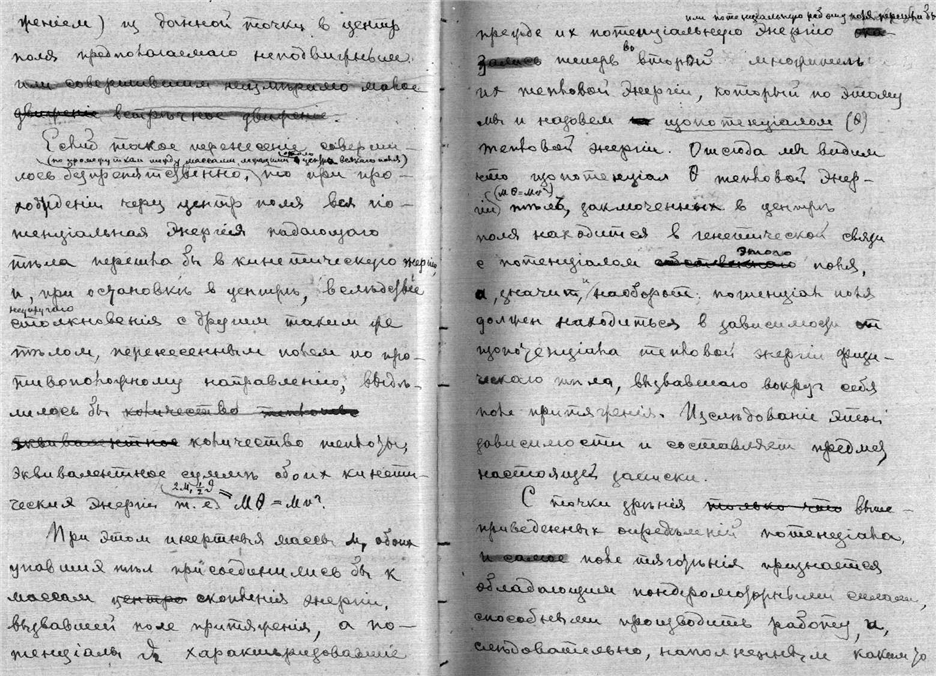 женiем) из данной точки в центр
поля предполагаемаго неподвижные
или совершившим неизмѣримо малое
движенiе встрѣчное движенiе.
Если такое перенесенiе соверши-
(по промежуткам между массами
лось безпрепятственно, то при про-
хожденiи через центр поля вся по-
тенцiальная энергiя падающаго
тѣла перешла бы в кинетическую энергiю,
и, при остановкѣ в центрѣ, вслѣдствiе
неупругаго
столкновенiя с другим таким же
тѣлом, перенесенным полем по про-
тивоположному направленiю, выдѣ-
лилось бы количество
эквивалентное количество теплоты,
эквивалентное суммѣ обоих кинети-
ческих энергiй т.е. Mθ = Mv²
При этом инертныя массы M, обоих
упавших тѣл присоединились бы к
массам центра скопленiя энергiи,
вызвавшей поле притяженiя, а по-
тенцiалы характеризовавшiе
или потенцiальную работу поля перешли бы
прежде их потенцiальную энергiю
теперь во второй множитель
их тепловой энергiи, который по этому
мы и назовем щопотенцiалом (θ)
тепловой энергiи. Отсюда мы видим
что щопотенцiал θ тепловой энер-
(Mθ = Mv²)
гiи тѣлъ, заключенных в центрѣ
поля находится в генетической связи
этого
с потенцiалом поля,
а, значит, и наоборот: потенцiал поля
должен находиться в зависимости от
щопотенцiала тепловой энергiи физи-
ческаго тѣла, вызвавшаго вокруг себя
поле притяженiя. Изслѣдованiе этой
зависимости и составляет предмет
настоящей записки.
С точки зрѣнiя только что выше-
приведенных опредѣленiй потенцiала,
и самое поле тяготѣнiя признается
обладающим пондеромоторными силами,
способными производить работу, и,
слѣдовательно, наполненным каким то